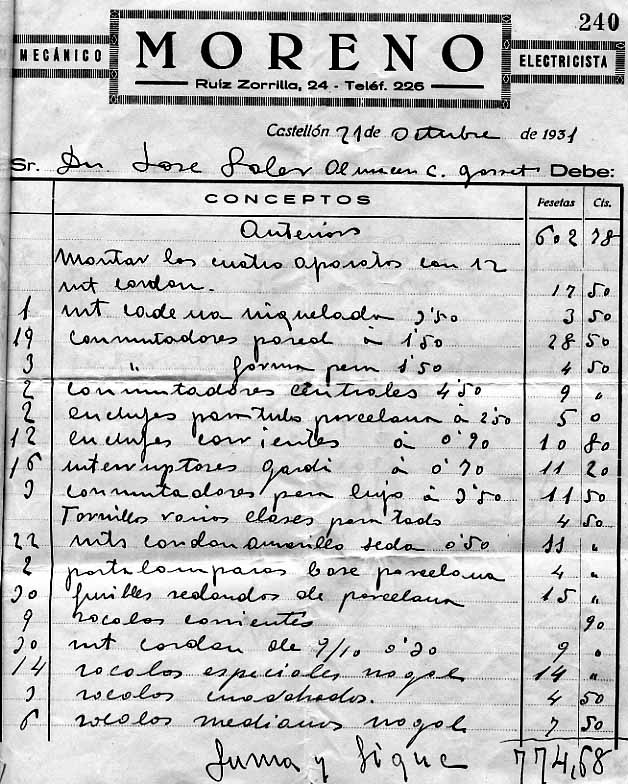 240
MECÁNICO
MORENO
ELECTRICISTA
Ruíz Zorrilla, 24 - Teléf. 226
Castellón 21 de Octubre de 1931
Sr. Dn Jose Soler Almacen C. gasset Debe:
CONCEPTOS Pesetas Cts.
Anteriors 602 78
Montar los cuatro aparatos con 12
mt cordon. 17 50
1 mt cadena niquelada 3'50 3 50
19 conmutadores pared à 1'50 28 50
3 " forma pera 1'50 4 50
2 conmutadores centrales 4'50 9 "
2 enchufes porcelana à 2'50 5 0
12 enchufes corrientes à 0'90 10 80
16 interruptores gardi à 0'70 11 20
3 conmutadores pera lujo à 3'50 11 50
Tornillos varios clases para todo 4 50
22 mts cordon amarillo seda 0'50 11 "
2 portalamparas base porcelana 4 "
30 fusibles redondos de porcelana 15 "
9 rocalos corrientes 90
30 mt cordon de 9/10 0'30 9 "
14 rocalos especiales nogal 14 "
3 rocalos cuadrados. 4 50
6 rocalos medianos nogal 7 50
Suma y Sigue 774,68